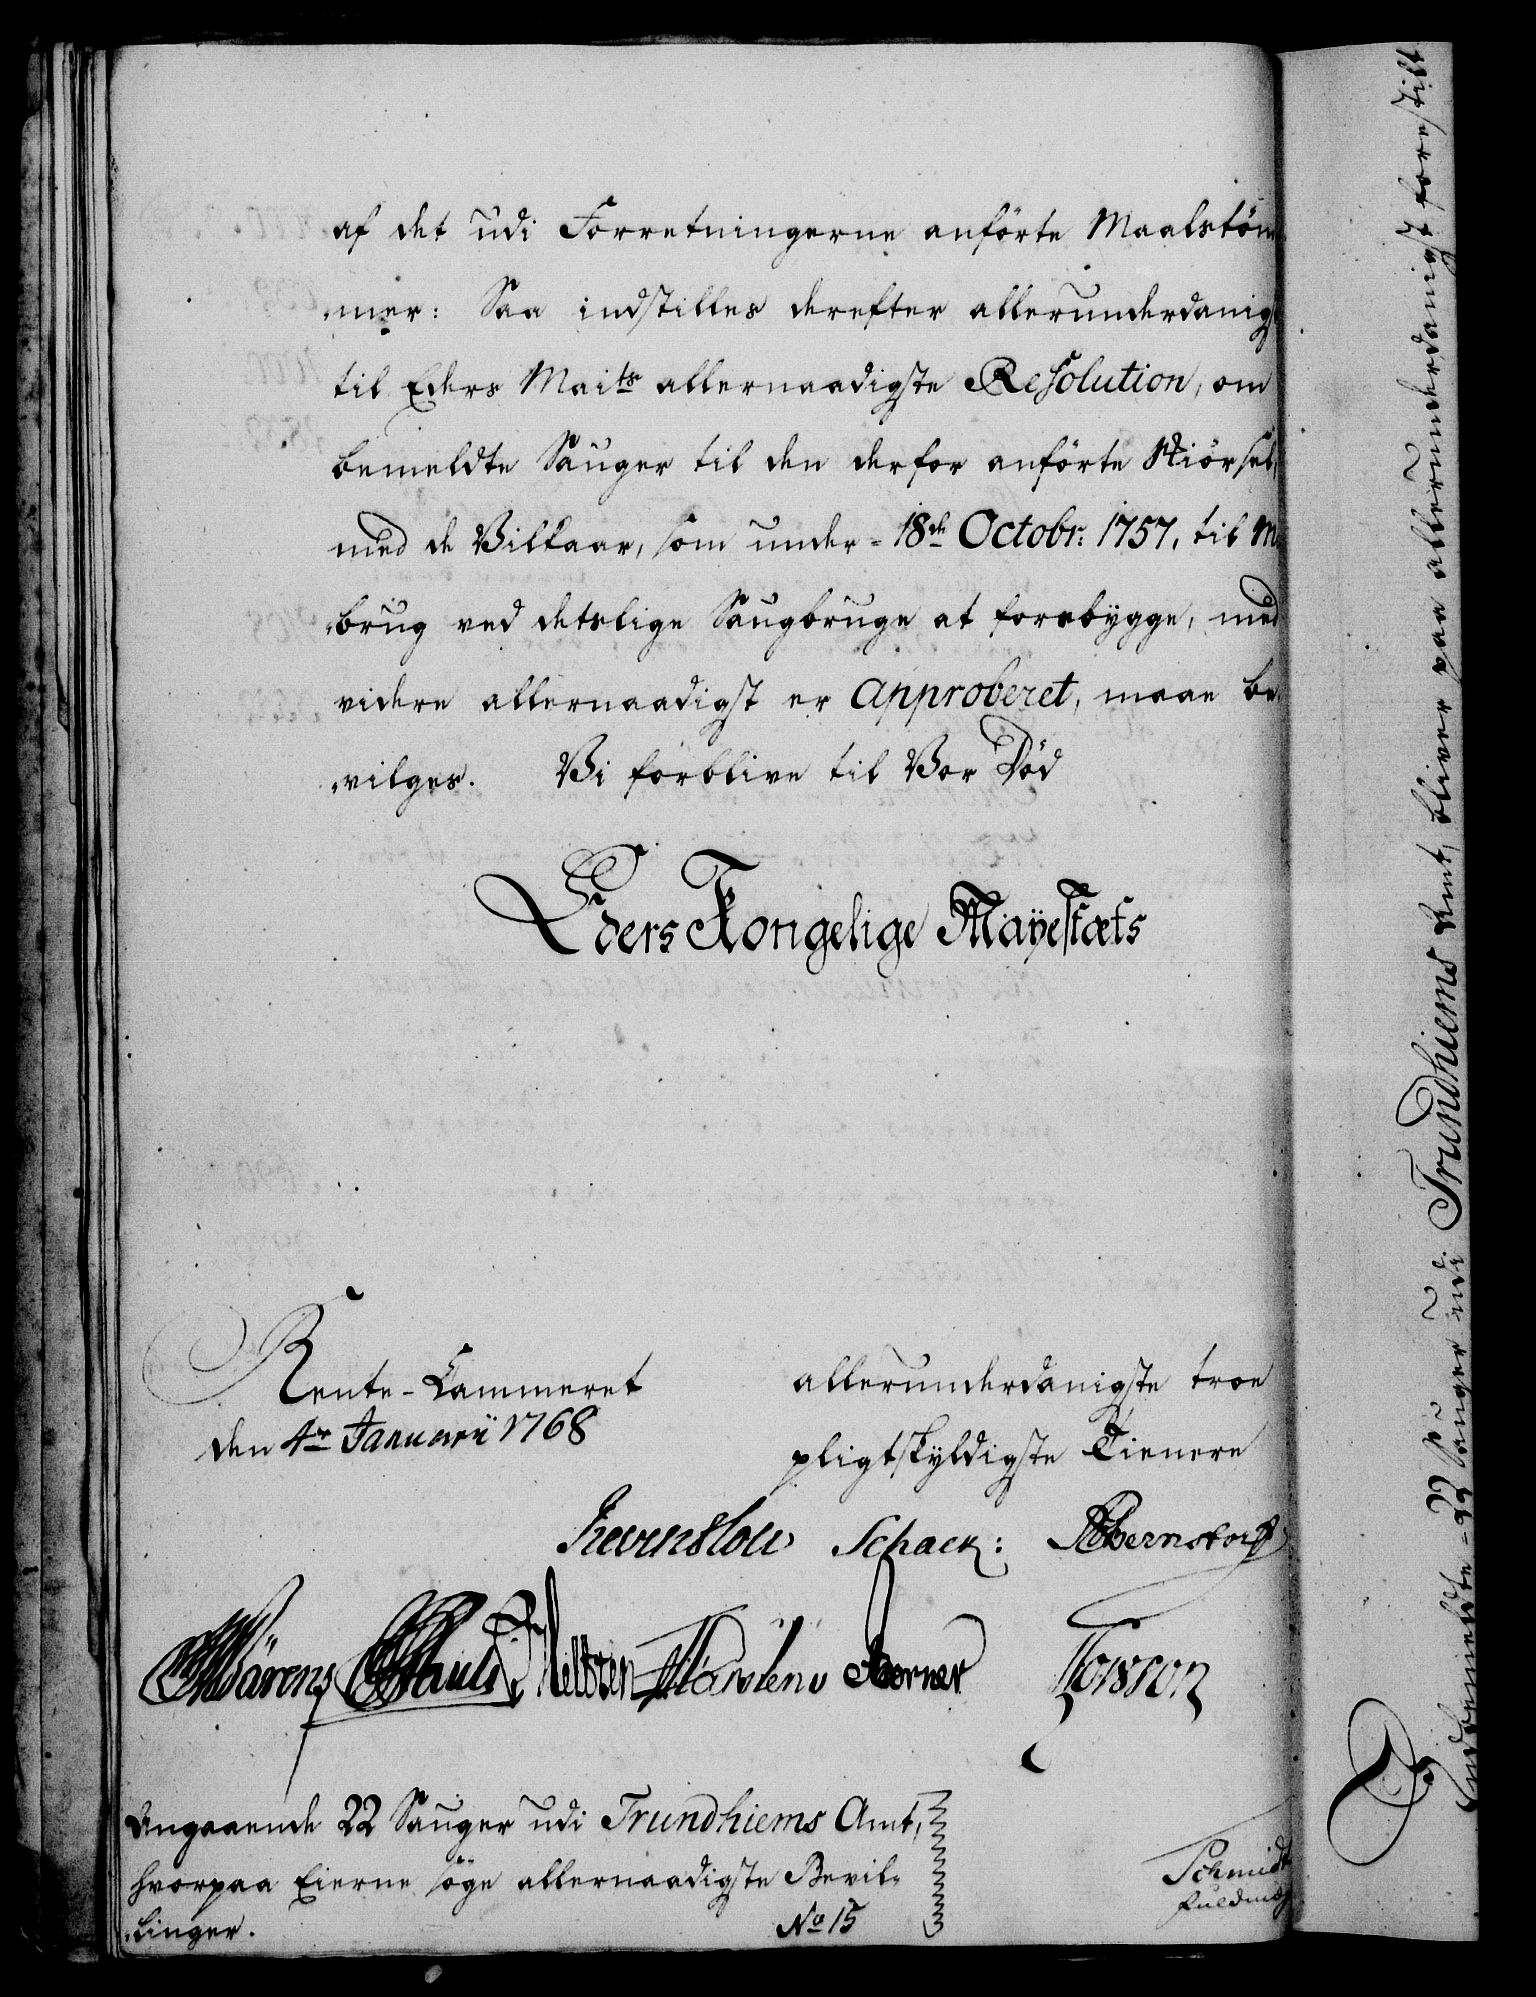 af det udi Forretningerne anförte Maalstöm¬
„mer: Saa indstilles derefter allerunderdanigst
til Eders Maits allernaadigste Resolution, om
bemeldte Sauger til den derfor anförte Skiörsel,
med de Vilkaar, som under = 18de Octobr: 1757, til M
„brug ved detslige Saugbruge at forebygge, med
videre allernaadigst er approberet, maae be„
„vilges. Vi forblive til Vor Död
Eders Kongelige Mayestæts
Rente-Cammeret
den 4de Januarii 1768
allerunderdanigste troe
pligtskyldigste Tienere
Reventlow Schack: Bernstorff
Bärens Pauli Heltzen Karstens Acerner
Angaaende 22 Sauger udi Trundhiems Amt,
hvorpaa Eierne söge allernaadigste Bevil„
„linger.
No 15
Schmidt
fuldmæg
Indbemeldte = 22 Sauger udi Trundhiems Amt, bliver paa allerunderdanigst forestilt